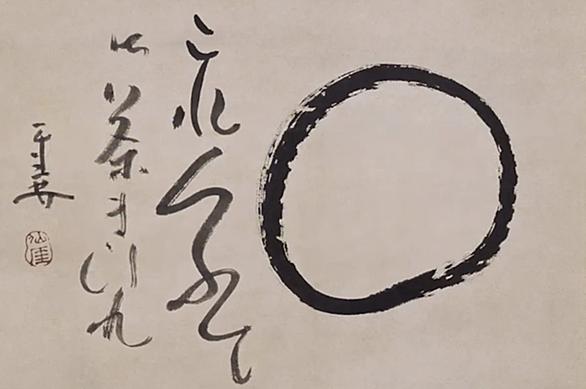 これくふて
御茶まいれ
仙厓